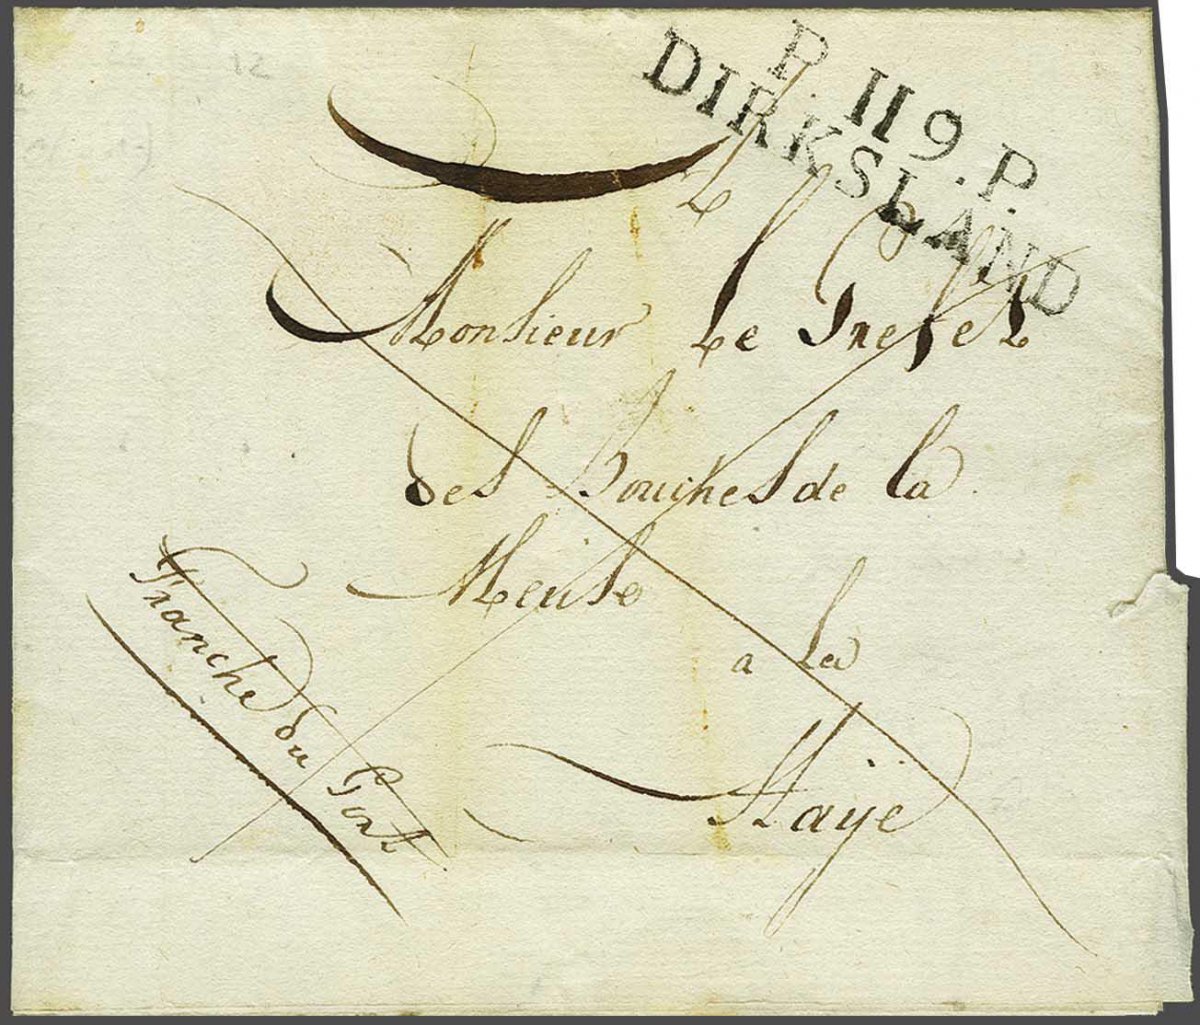 12
P. 119. P.
DIRKSLAND
a
Monsieur Le Prefet
des Bouches de la
Meuse
a la
Haÿe
Franche du Port